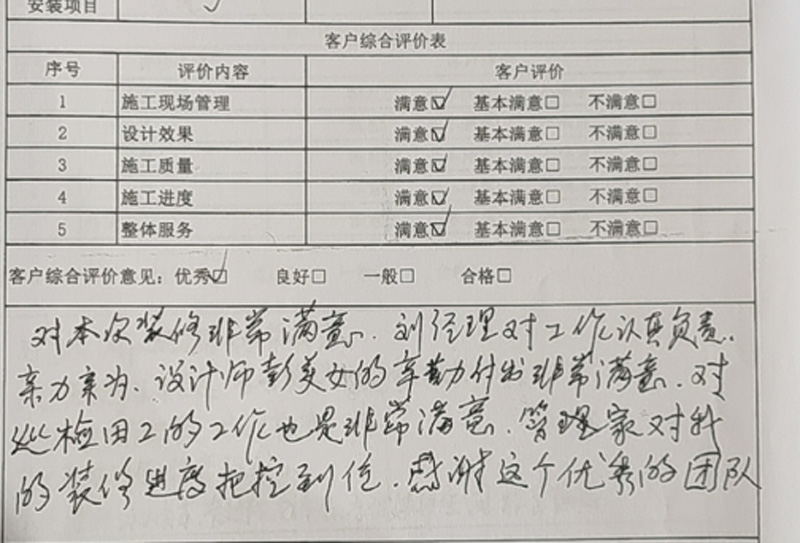 安装项目 ✓
客户综合评价表
序号 评价内容 客户评价
1 施工现场管理 满意☑ 基本满意□ 不满意□
2 设计效果 满意☑ 基本满意□ 不满意□
3 施工质量 满意☑ 基本满意□ 不满意□
4 施工进度 满意☑ 基本满意□ 不满意□
5 整体服务 满意☑ 基本满意□ 不满意□
客户综合评价意见：优秀☑ 良好□ 一般□ 合格□
对本次装修非常满意．刘经理对工作认真负责．
亲力亲为．设计师彭美女的辛勤付出非常满意．对
巡检田工的工作也是非常满意．管理家对我
的装修进度把控到位．感谢这个优秀的团队